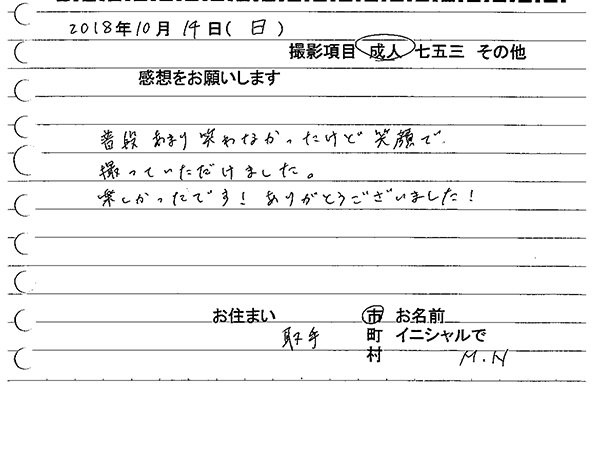 2018年10月14日(日)
撮影項目 成人 七五三 その他
感想をお願いします
普段あまり笑わなかったけど笑顔で
撮っていただけました。
楽しかったです！ありがとうございました！
お住まい 取手 市 町 村
お名前 イニシャルで M.N